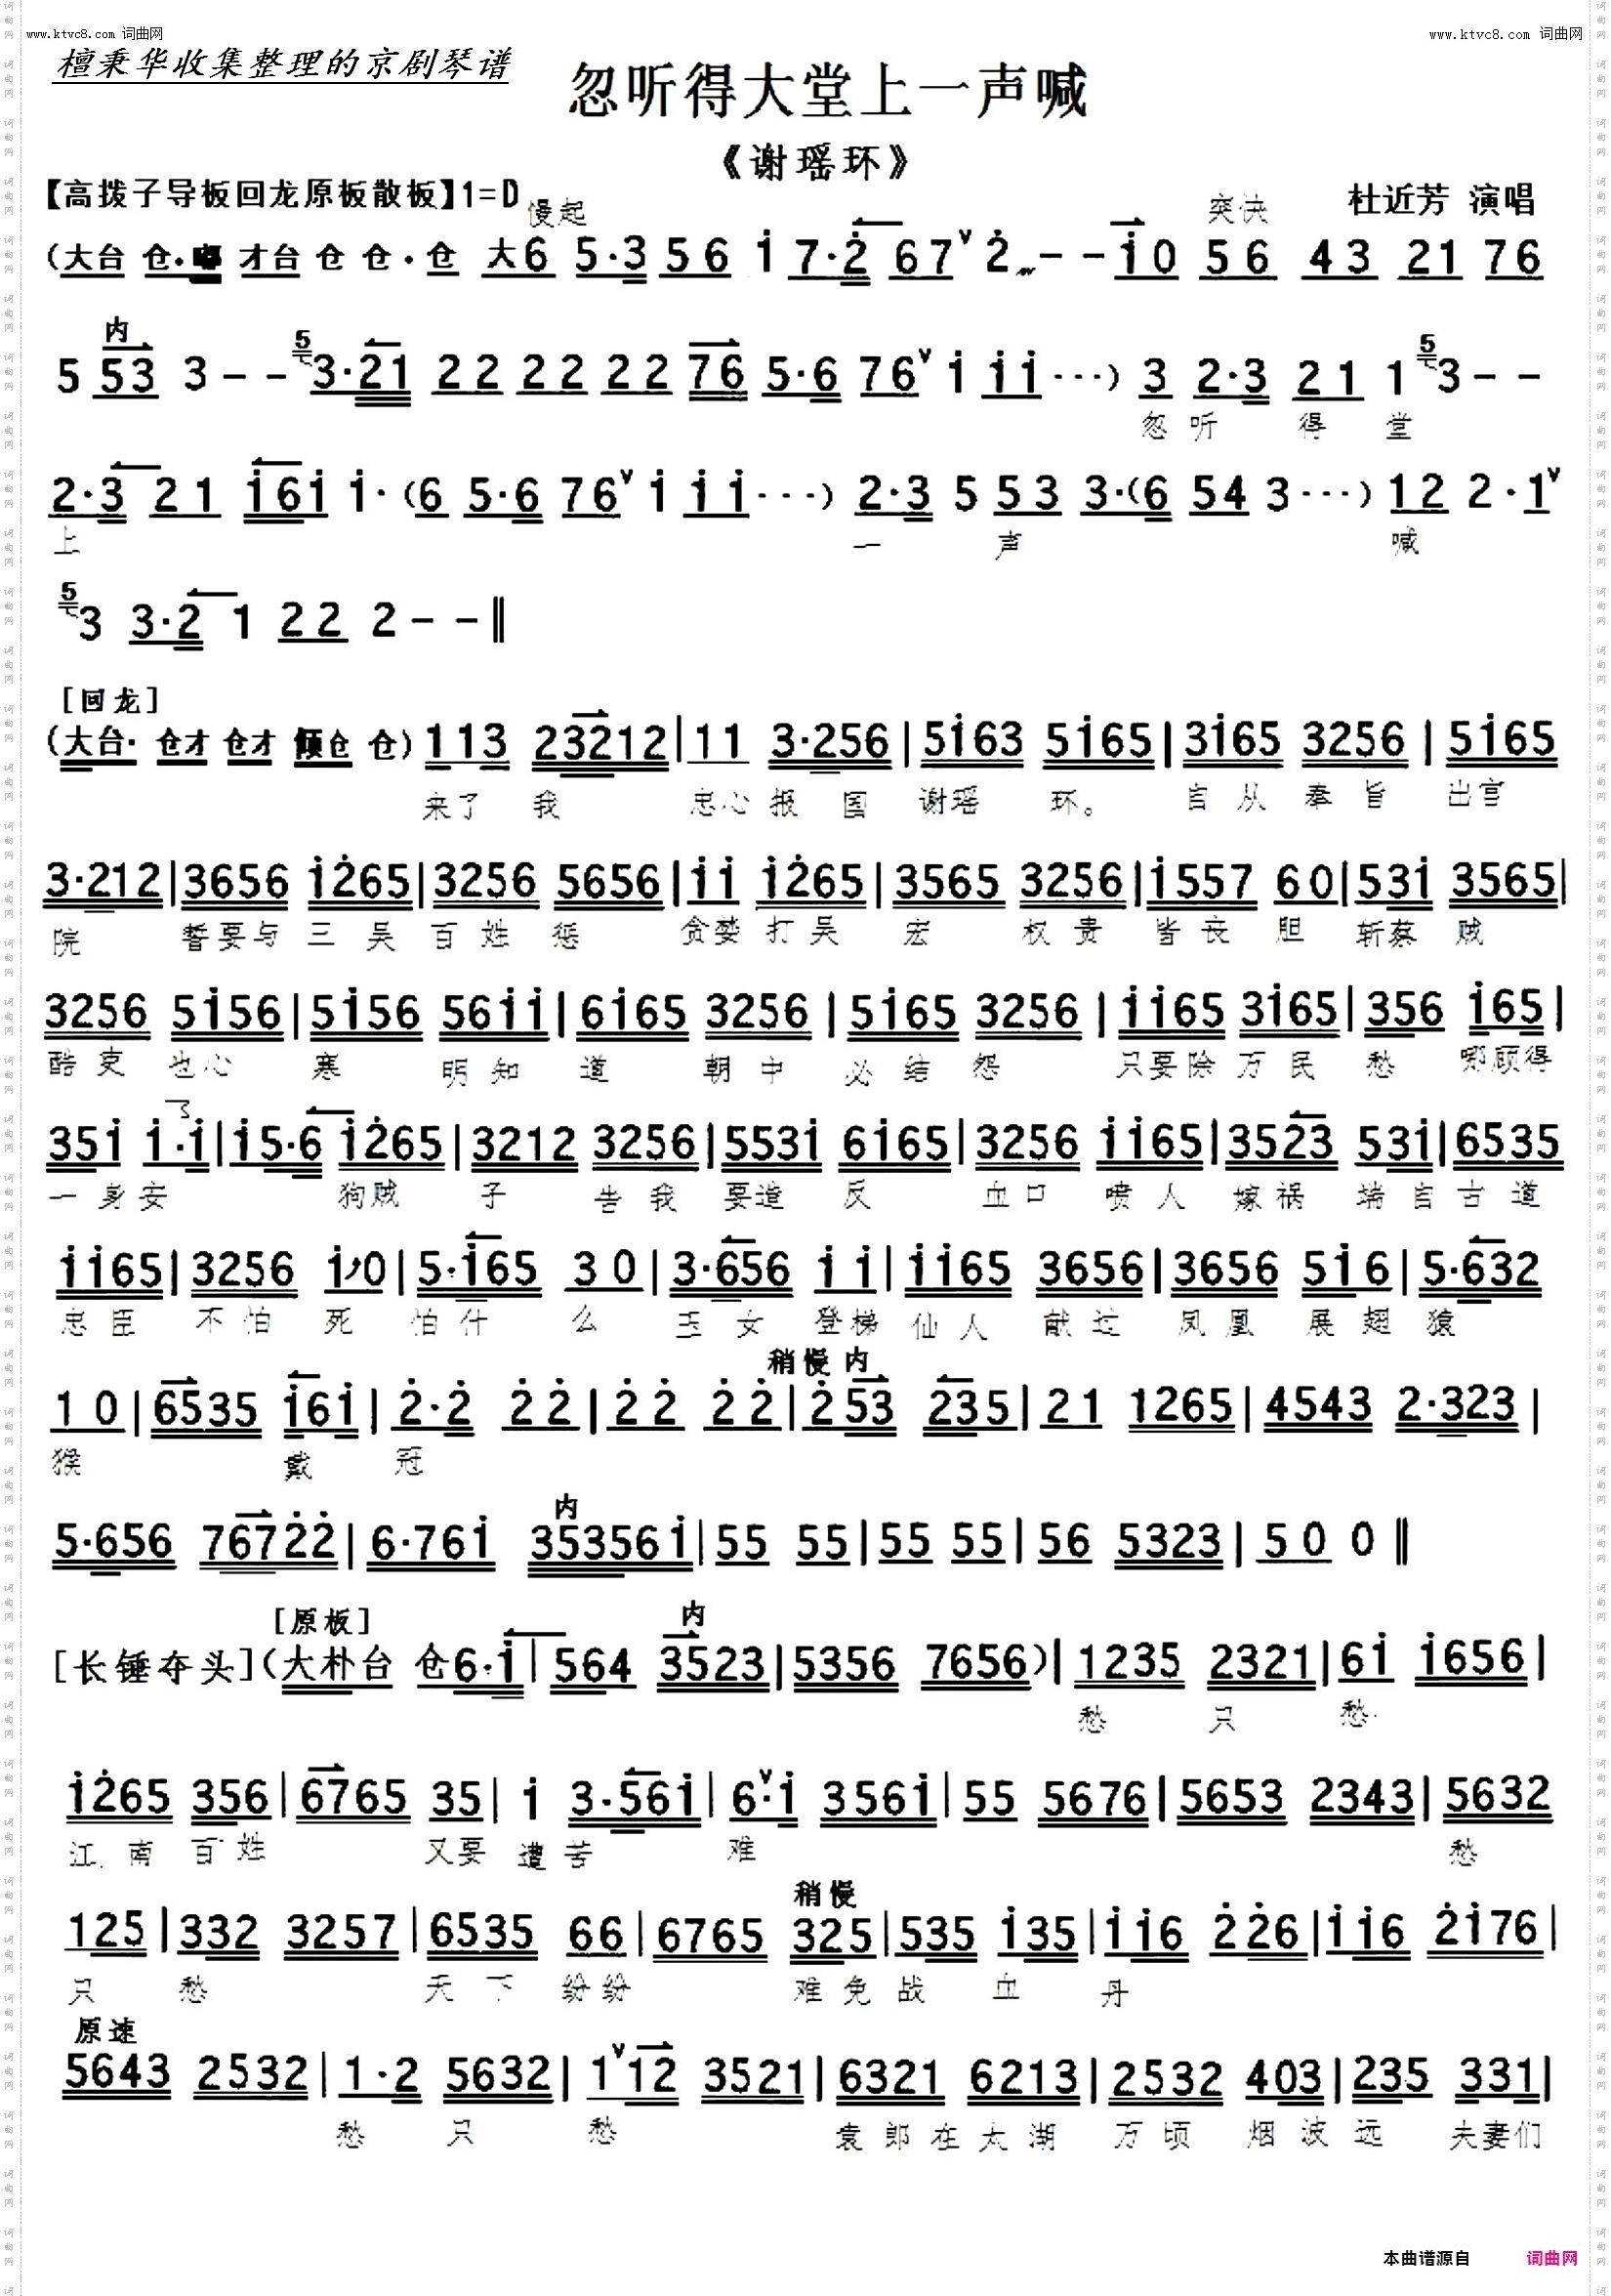 www.ktvc8.com 词曲网
www.ktvc8.com 词曲网
檀秉华收集整理的京剧琴谱
忽听得大堂上一声喊
《谢瑶环》
【高拨子导板回龙原板散板】1=D 慢起 突快 杜近芳 演唱
(大台 仓· 才台 仓 仓·仓 大6 5·3 56 i 7·2 67 2 -- i0 56 43 21 76
内
5 53 3-- 5 3·21 22 22 22 76 5·6 76 i ii ···) 3 2·3 21 1 5 3--
忽 听 得 堂
2·3 21 i6i i·(6 5·6 76 i ii ···) 2·3 5 53 3·(6 54 3···) 12 2·1
上 一 声 喊
5 3 3·2 1 22 2--‖
[回龙]
(大台· 仓才 仓才 倾仓 仓) 113 23212|11 3·256|5i63 5i65|3i65 3256|5i65
来了 我 忠心报 国 谢瑶 环。 自从 奉旨 出官
3·212|3656 i265|3256 5656|ii i265|3565 3256|i557 60|53i 3565|
院 誓要与三吴百姓惩 贪婪打吴宏 权贵皆丧胆 斩蔡贼
3256 5i56|5i56 56ii|6i65 3256|5i65 3256|ii65 3i65|356 i65|
酷吏也心寒 明知道 朝中必结怨 只要除万民愁 哪顾得
35i i·i|i5·6 i265|3212 3256|553i 6i65|3256 ii65|3523 53i|6535
一身安 狗贼子告我要造反 血口喷人嫁祸端自古道
ii65|3256 i0|5·i65 30|3·656 ii|ii65 3656|3656 5i6|5·632
忠臣不怕死 怕什么 玉女登梯仙人献过 凤凰展翅猿
稍慢 内
10|6535 i6i|2·2 22|22 22|253 235|21 1265|4543 2·323|
猴 戴 冠
内
5·656 76722|6·76i 35356i|55 55|55 55|56 5323|50 0‖
[原板] 内
[长锤夺头](大朴台 仓6·i|564 3523|5356 7656)|1235 2321|6i i656|
愁 只 愁
i265 356|6765 35|i 3·56i|6·i 356i|55 5676|5653 2343|5632
江南百姓 又要遭苦 难 愁
稍慢
125|332 3257|6535 66|6765 325|535 i35|ii6 226|ii6 2i76|
只 愁 天下纷纷 难免战血丹
原速
5643 2532|1·2 5632|1 12 3521|6321 6213|2532 403|235 331|
愁 只 愁 袁郎在太湖 万顷烟波远 夫妻们
本曲谱源自 词曲网